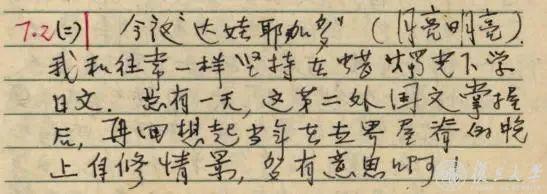 7.2(二) 今夜“达娃耶加多”(月亮明亮).
我和往常一样坚持在蜡烛光下学
日文. 总有一天,这第二外国文掌握
后,再回想起当年在世界屋脊的晚
上自修情景,多有意思啊!
复旦大学